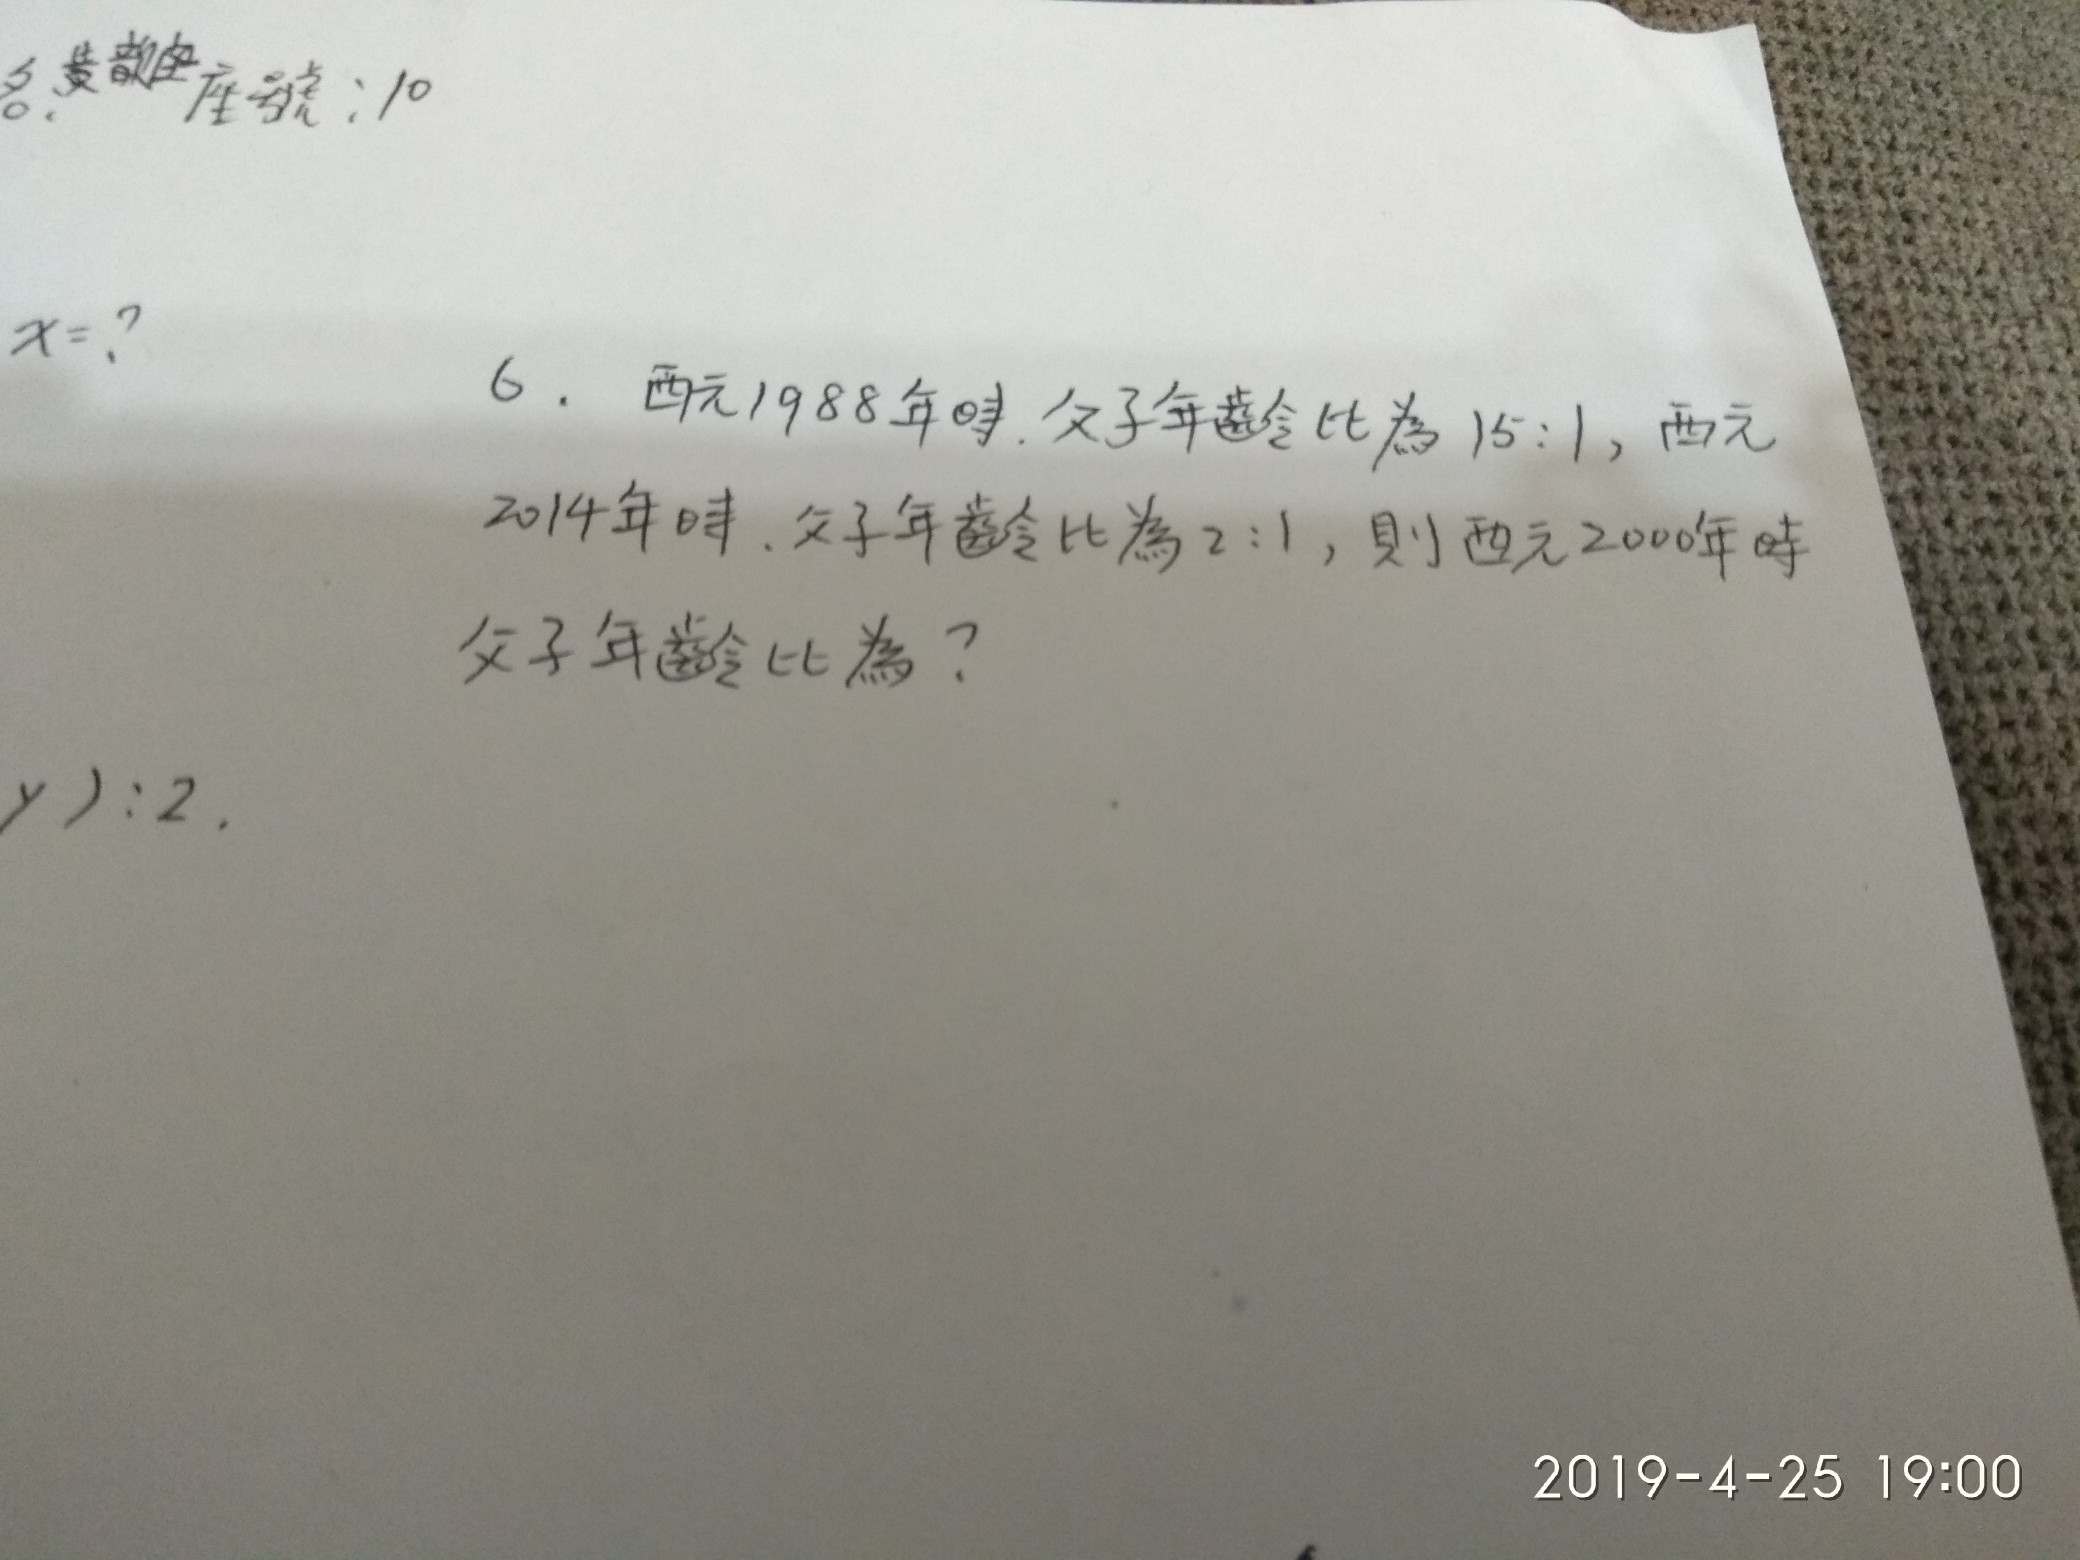 名:黃歆 座號:10
x=?
6. 西元1988年時.父子年齡比為15:1,西元
2014年時.父子年齡比為2:1,則西元2000年時
父子年齡比為?
y):2.
2019-4-25 19:00